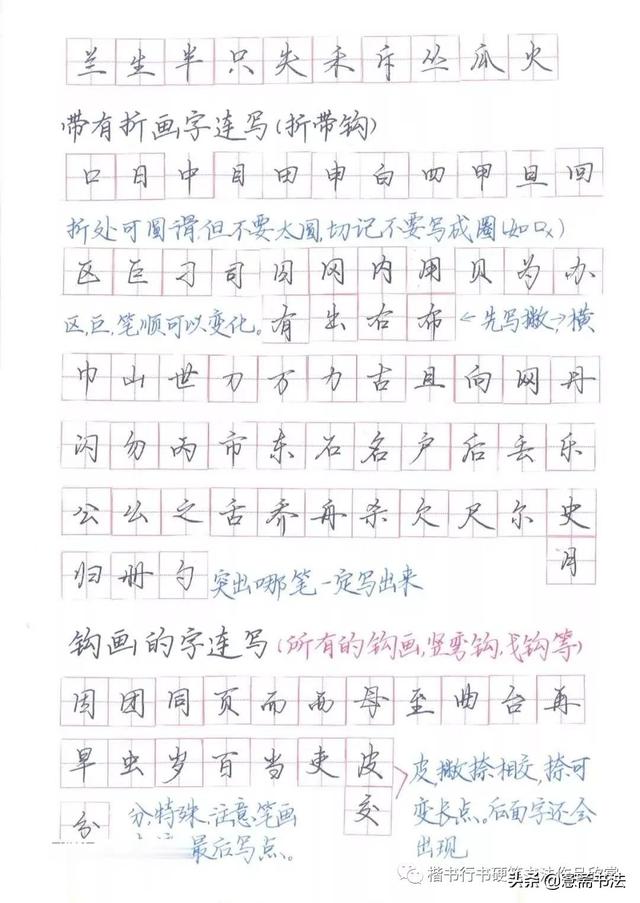 兰生半只失禾斥丛瓜火
带有折画字连写(折带钩)
口日中目田申白四甲旦回
折处可圆滑,但不要太圆,切记不要写成圈(如口x)
区巨刁司囚冈内用贝为办
区,巨,笔顺可以变化。有出右布←先写撇→,横
巾山世刀万力古且向网丹
闪勿丙市东石名户后丢乐
公么之舌乔再杀欠尺尔史
归册勺 突出哪笔一定写出来 月
钩画的字连写(所有的钩画,竖弯钩,戈钩等)
因团同页而面母至曲台再
早虫岁百当吏皮 皮,撇捺相交,捺可
分 分,特殊,注意,笔画 交 变长点。后面字还会
最后写点。 出现
楷书行书硬笔书法作品欣赏
头条@慧斋书法